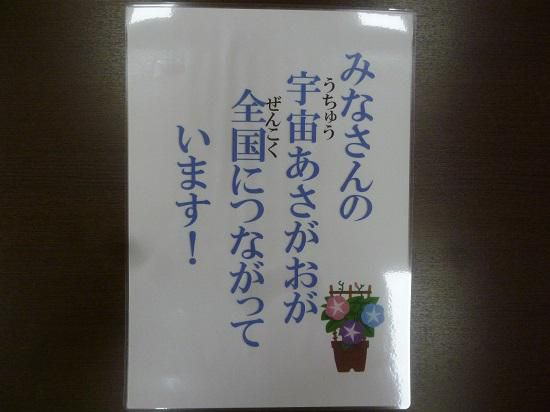 みなさんの
うちゅう
宇宙あさがおが
ぜんこく
全国につながって
います！